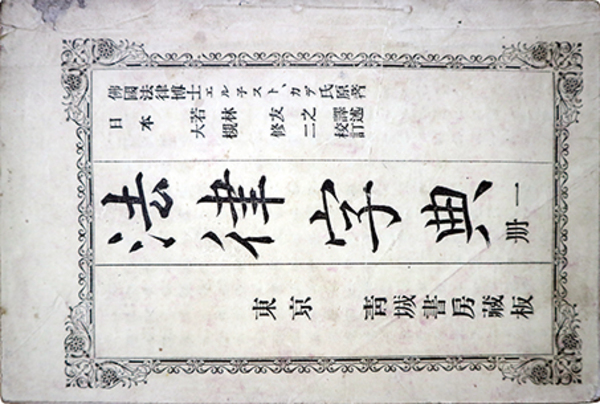 佛國法律博士エル子スト、カデ氏原著
日本 若林友之譯述
大槻修二校訂
法律字典 一册
東京 靑城書房藏板